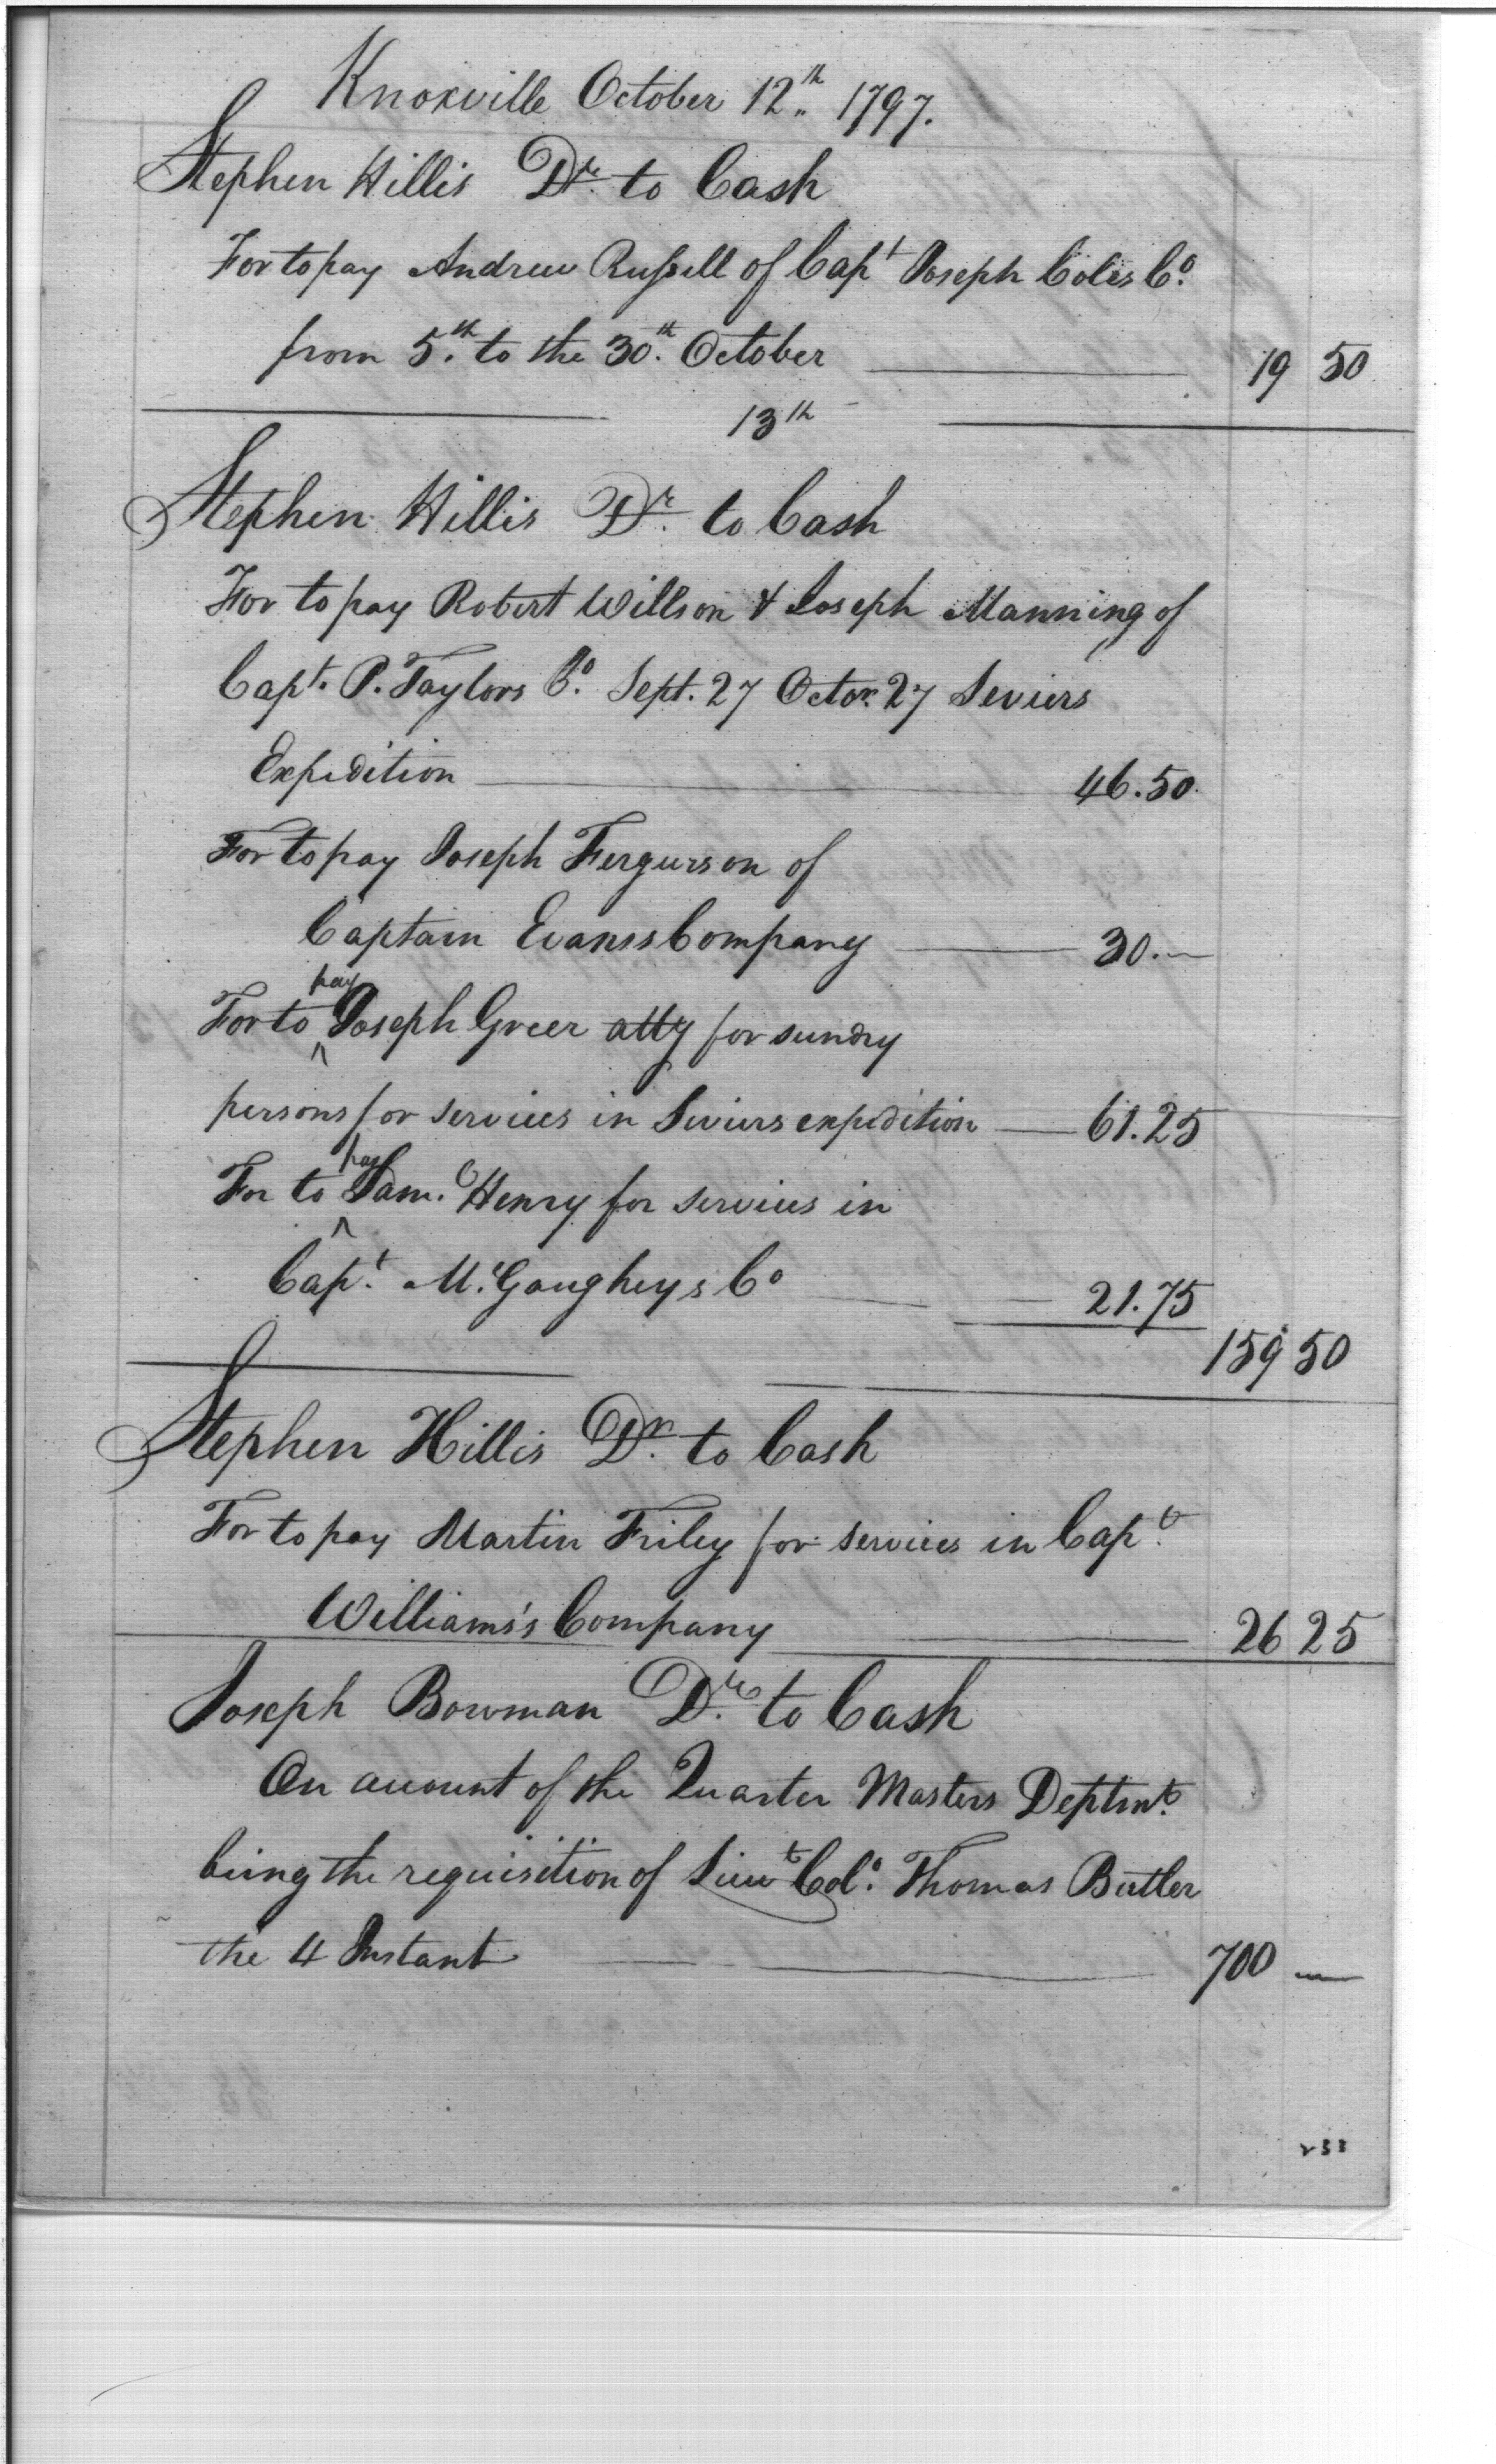 Knoxville October 12th 1797.
Stephen Hillis Dr. to Cash
For to pay Andrew Russell of Capt Joseph Coles Co.
from 5th. to the 30th. October 19 50
13th
Stephen Hillis Dr. to Cash
For to pay Robert Willson & Joseph Manning of
Capt. P. Taylors Co. Sept. 27 Octor. 27 Seviers
Expedition 46.50
For to pay Joseph Fergurson of
Captain Evans's Company 30.—
For to pay Joseph Greer atty for sundry
persons for services in Seviers expedition — 61.25
For to pay Saml. Henry for services in
Capt. McGaugheys Co 21.75
159 50
Stephen Hillis Dr. to Cash
For to pay Martin Friley for services in Capt.
Williams's Company 26 25
Joseph Bowman Dr. to Cash
On account of the Quarter Masters Deptmt.
being the requisition of Lieut Colo. Thomas Butler
the 4 Instant 700 —